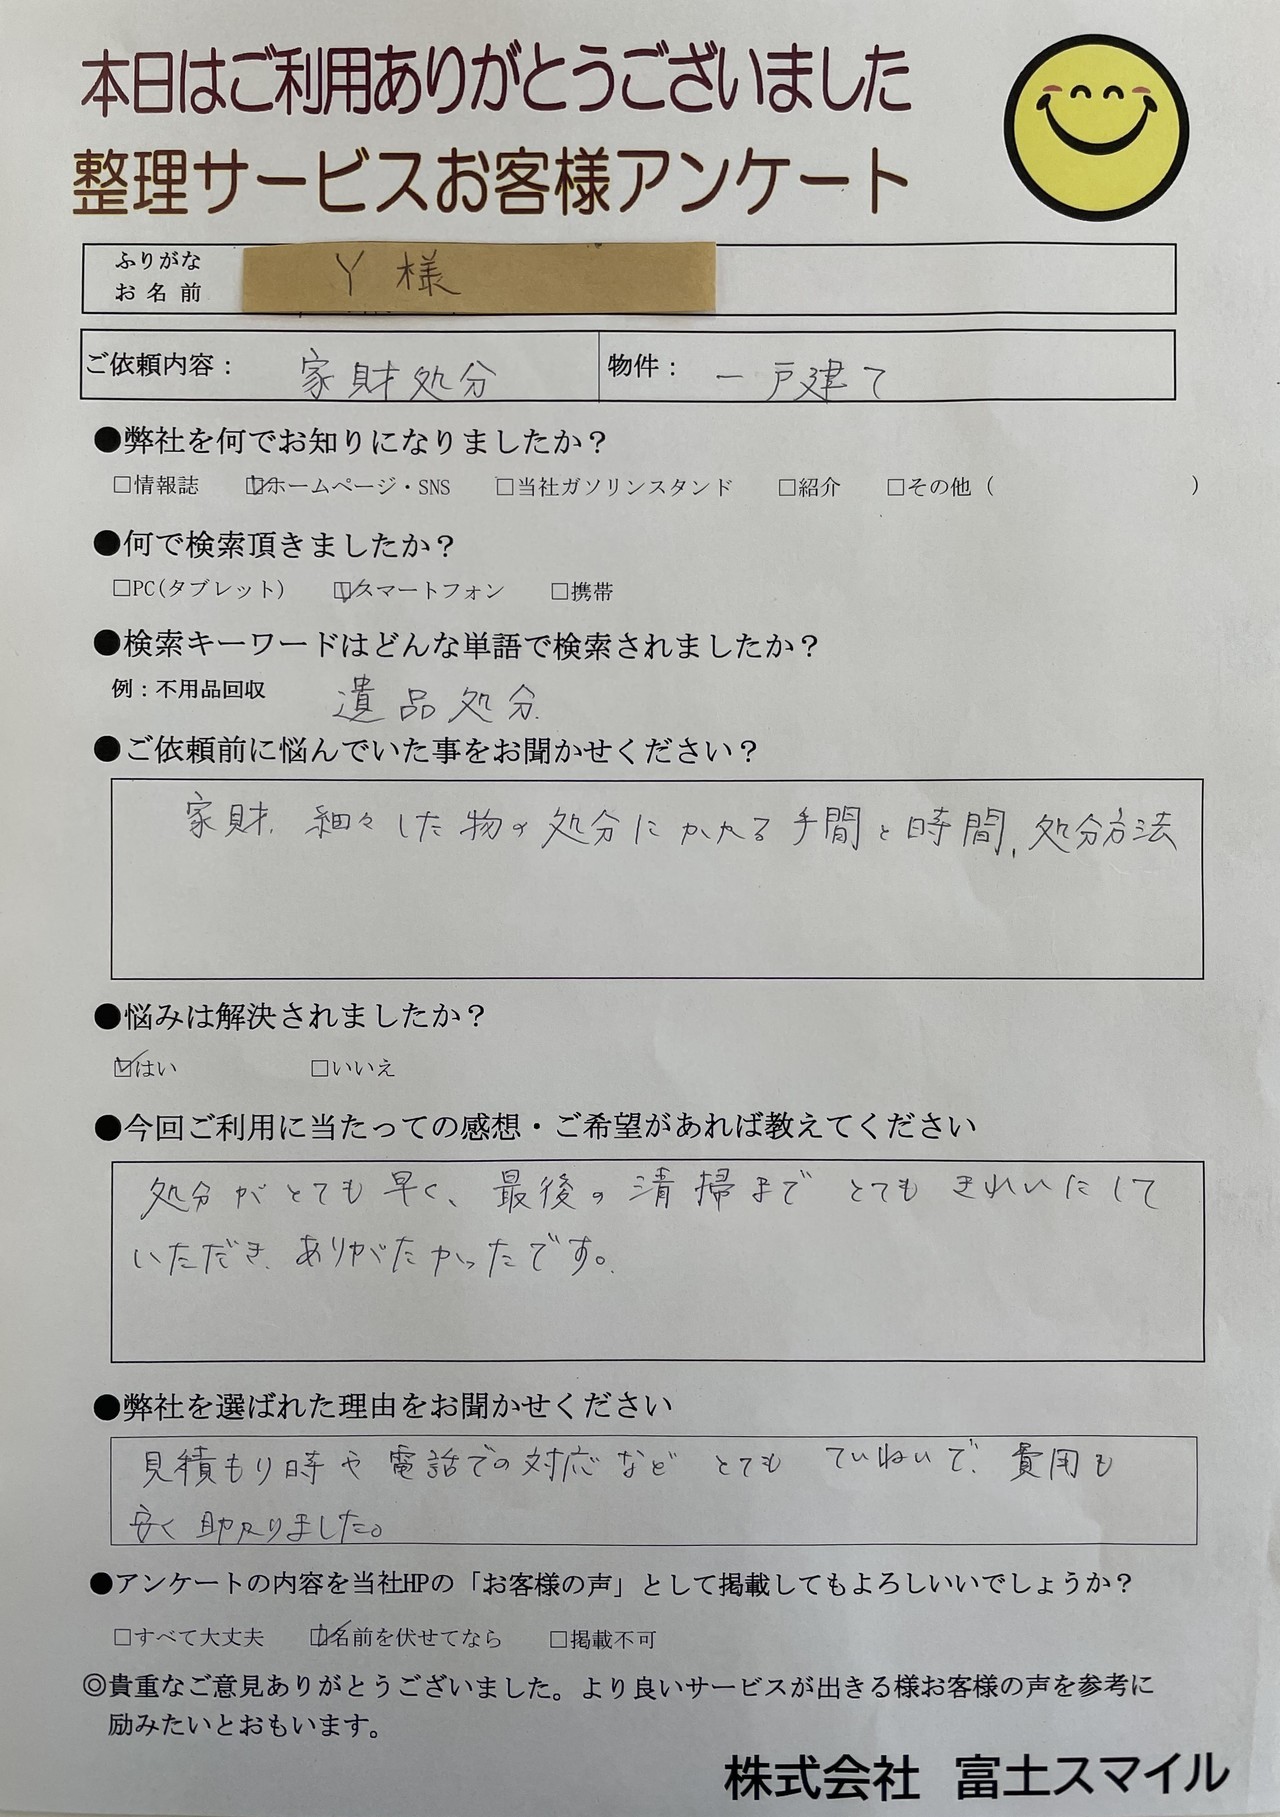 本日はご利用ありがとうございました
整理サービスお客様アンケート
ふりがな
お名前
Y様
ご依頼内容： 家財処分 物件： 一戸建て
●弊社を何でお知りになりましたか？
□情報誌 ☑ホームページ・SNS □当社ガソリンスタンド □紹介 □その他（ ）
●何で検索頂きましたか？
□PC(タブレット) ☑スマートフォン □携帯
●検索キーワードはどんな単語で検索されましたか？
例：不用品回収 遺品処分
●ご依頼前に悩んでいた事をお聞かせください？
家財、細々した物の処分にかかる手間と時間、処分方法
●悩みは解決されましたか？
☑はい □いいえ
●今回ご利用に当たっての感想・ご希望があれば教えてください
処分がとても早く、最後の清掃まで とてもきれいにして
いただき、ありがたかったです。
●弊社を選ばれた理由をお聞かせください
見積もり時や電話での対応など とても ていねいで、費用も
安く助かりました。
●アンケートの内容を当社HPの「お客様の声」として掲載してもよろしいいでしょうか？
□すべて大丈夫 ☑名前を伏せてなら □掲載不可
◎貴重なご意見ありがとうございました。より良いサービスが出きる様お客様の声を参考に
励みたいとおもいます。
株式会社 富士スマイル